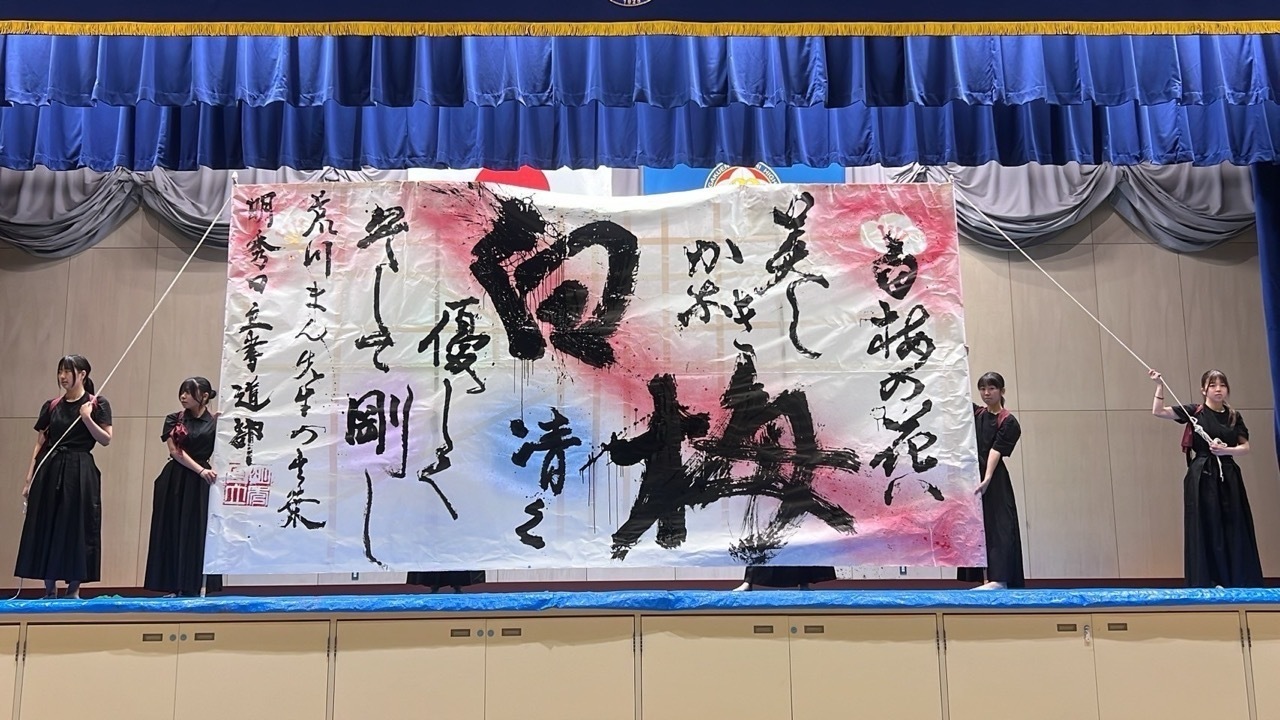 白梅の花は
美し
白梅
清く
優しく
そして剛し
荒川まん先生の言葉
明秀日立書道部